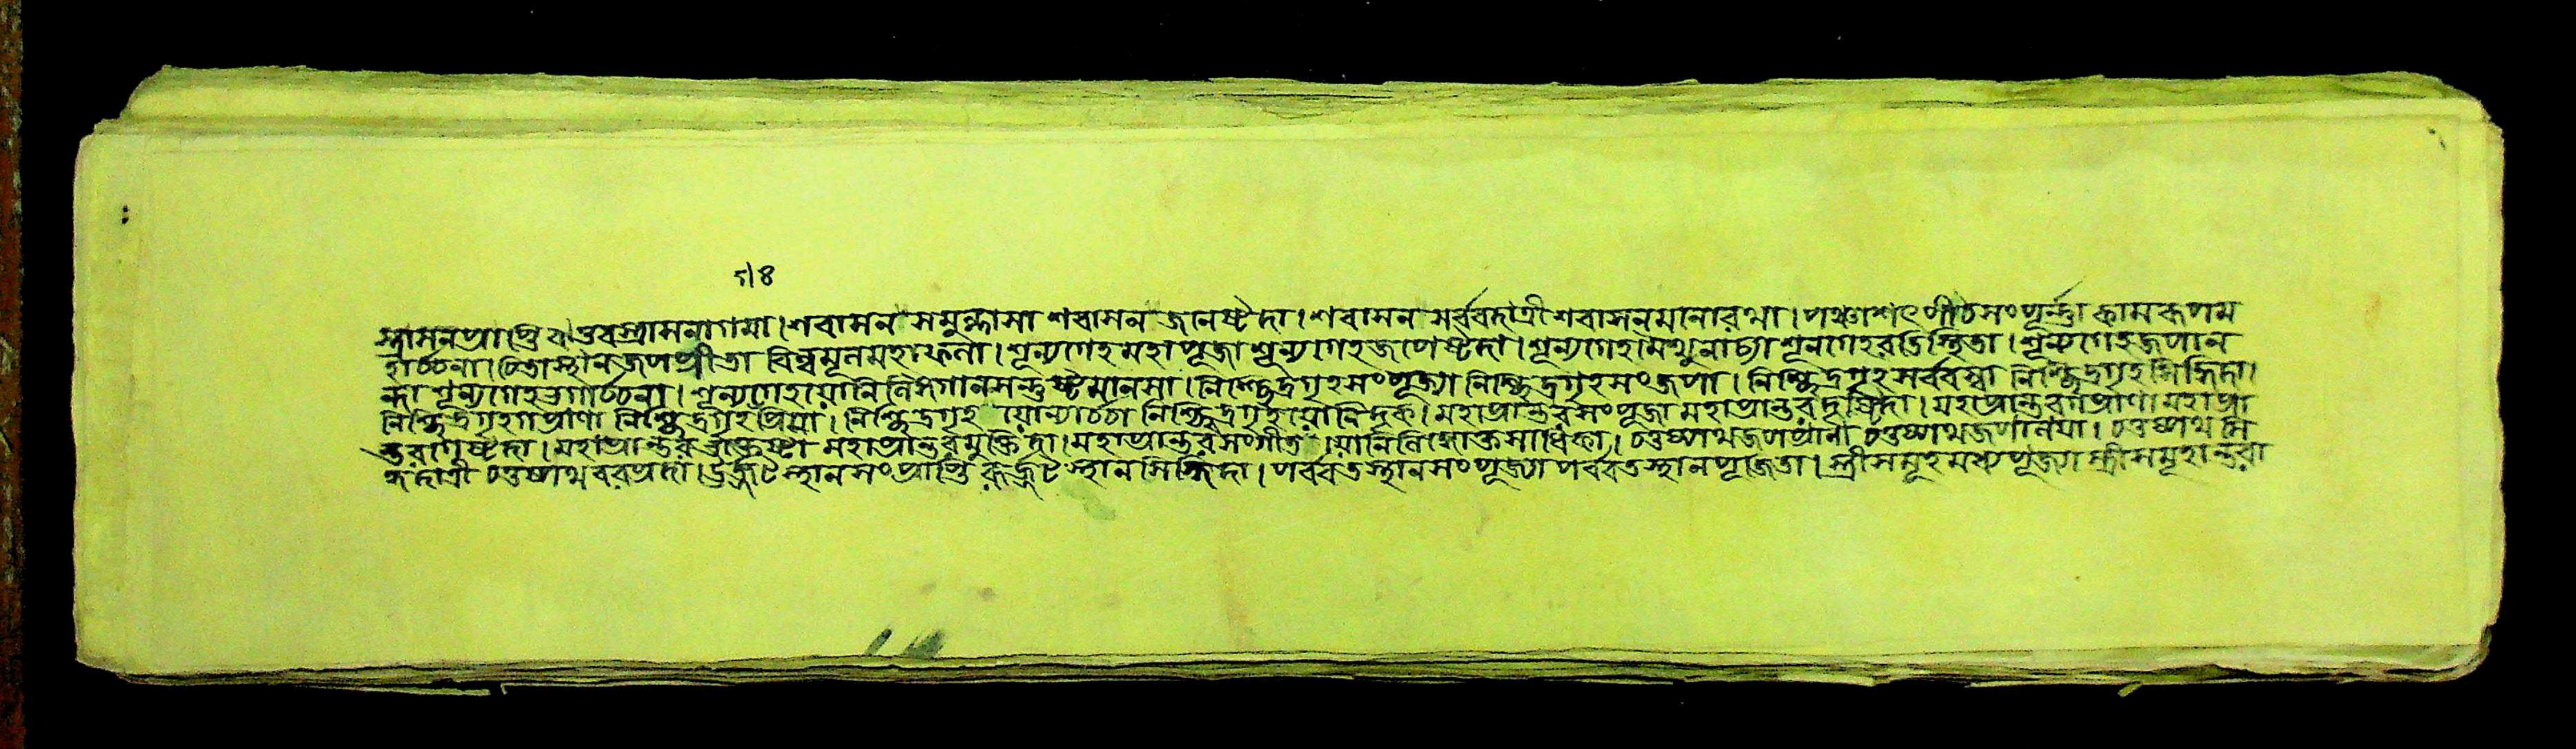 ৸৪
স্থাসনপ্রাপ্তি শবাসনাগমা। শবাসন সমুল্লাসা শবাসন জপেষ্টদা। শবাসন সর্ব্বদাত্রী শবাসনমনোরমা। পঞ্চাশৎপীঠসংপূর্ণা কামরূপম
হাঠনা। চিতাস্থানজপপ্রীতা বিল্বমূলমহাফলা। শূন্যগেহমহাপূজা শূন্যগেহজপেষ্টদা। শূন্যগেহমৈথুনাঢ্যা শূন্যগেহরতিস্থিতা। শূন্যগেহজপান
ন্দা শূন্যগেহ শূন্যগেহযোনিলিঙ্গগানসন্তুষ্টমানসা। নিশ্ছিদ্রগৃহসংপূজ্যা নিশ্ছিদ্রগৃহসংজপা। নিশ্ছিদ্রগৃহসর্ব্বস্বা নিশ্ছিদ্রগৃহসিদ্ধিদা।
নিশ্ছিদ্রগৃহগপ্রাণা নিশ্ছিদ্রগৃহপ্রিয়া। নিশ্ছিদ্রগৃহ যোন্যাঠঠা নিশ্ছিদ্রগৃহযোনিদৃক। মহাপ্রান্তরসংপূজা মহাপ্রান্তর মহাপ্রান্তরগপ্রাণা মহাপ্রা
ন্তরগেষ্টদা। মহাপ্রান্তর মহাপ্রান্তরমুক্তিদা। মহাপ্রান্তরসংগীত যোনিলিঙ্গোক্তসাধিকা। চতুষ্পথজপপ্রাণা চতুষ্পথজপানয়া। চতুষ্পথ সি
দ্ধিদাত্রী চতুষ্পথবরপ্রদা। স্থানসংপ্রাপ্তি স্থানসিদ্ধিদা। পর্ব্বতস্থানসংপূজ্যা পর্ব্বতস্থানপূজিতা। স্ত্রীসমূহমধ্যপূজ্যা স্ত্রীসমূহান্তরা